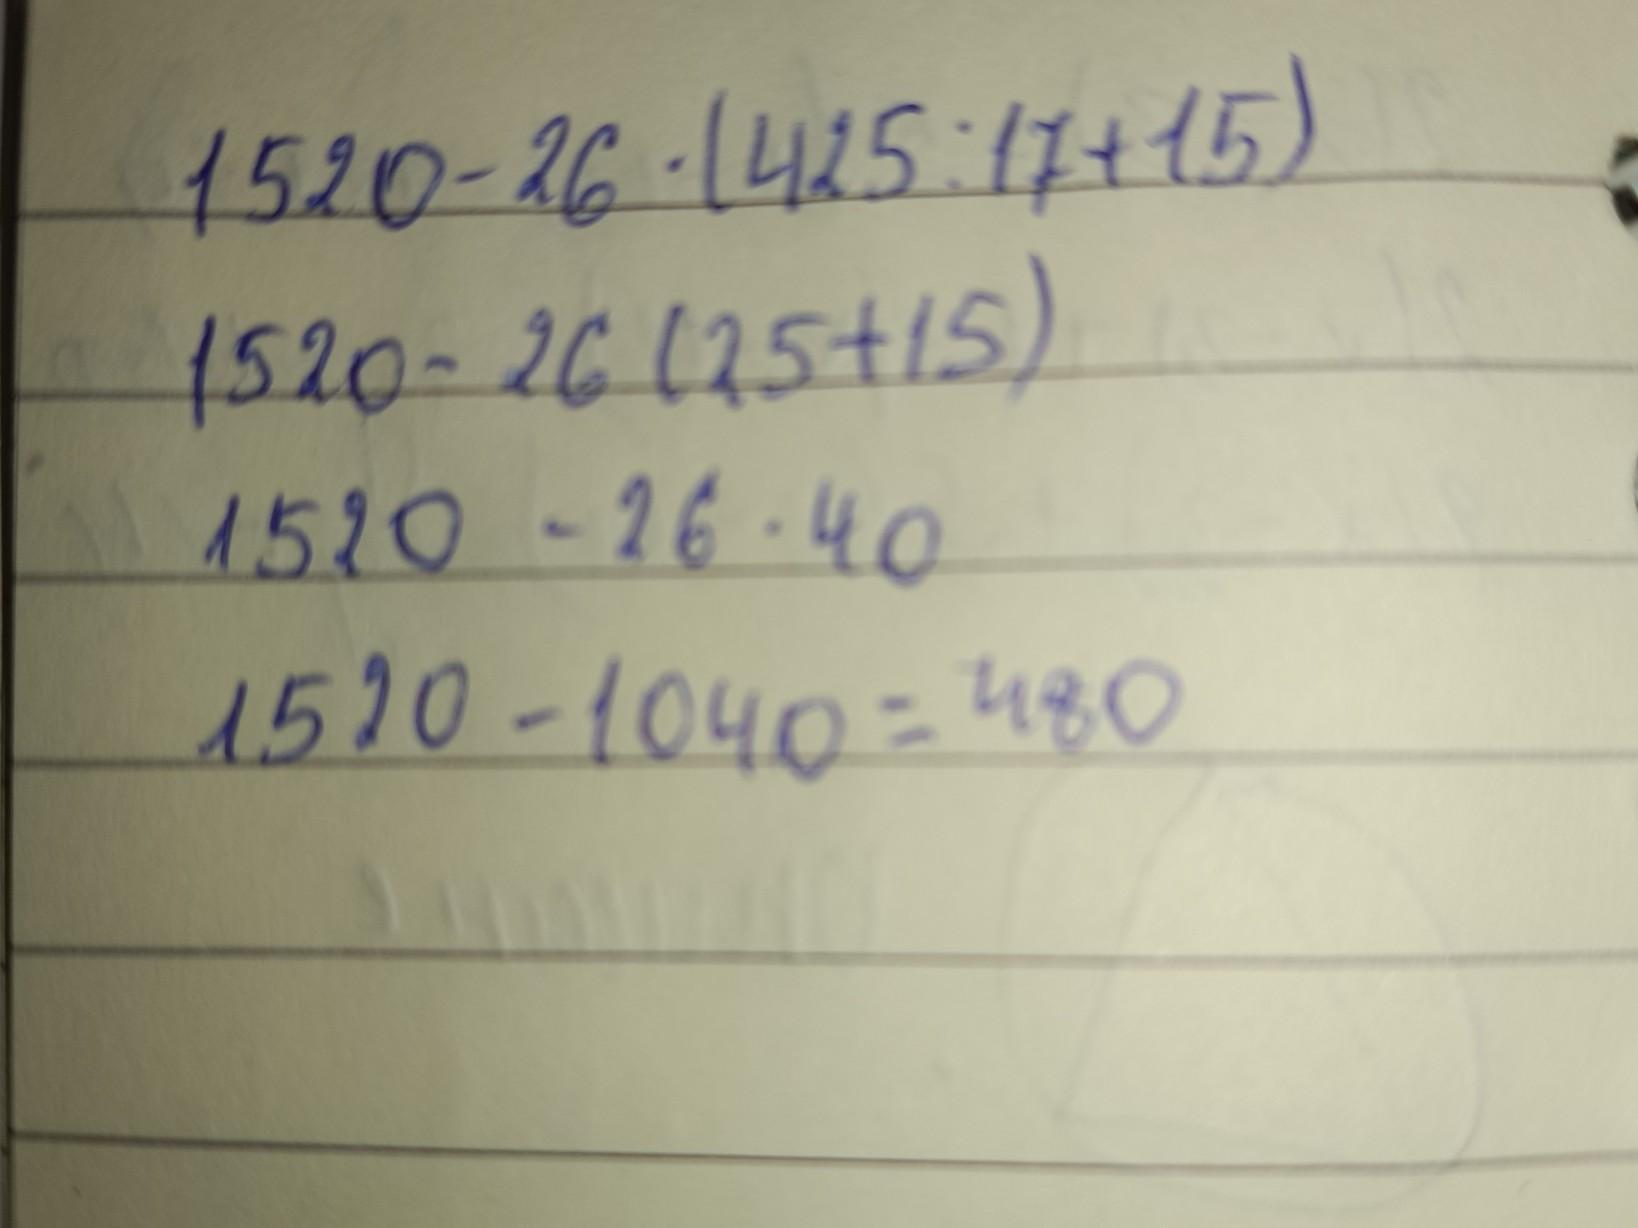 1520-26·(425:17+15)
1520-26(25+15)
1520-26·40
1520-1040=480